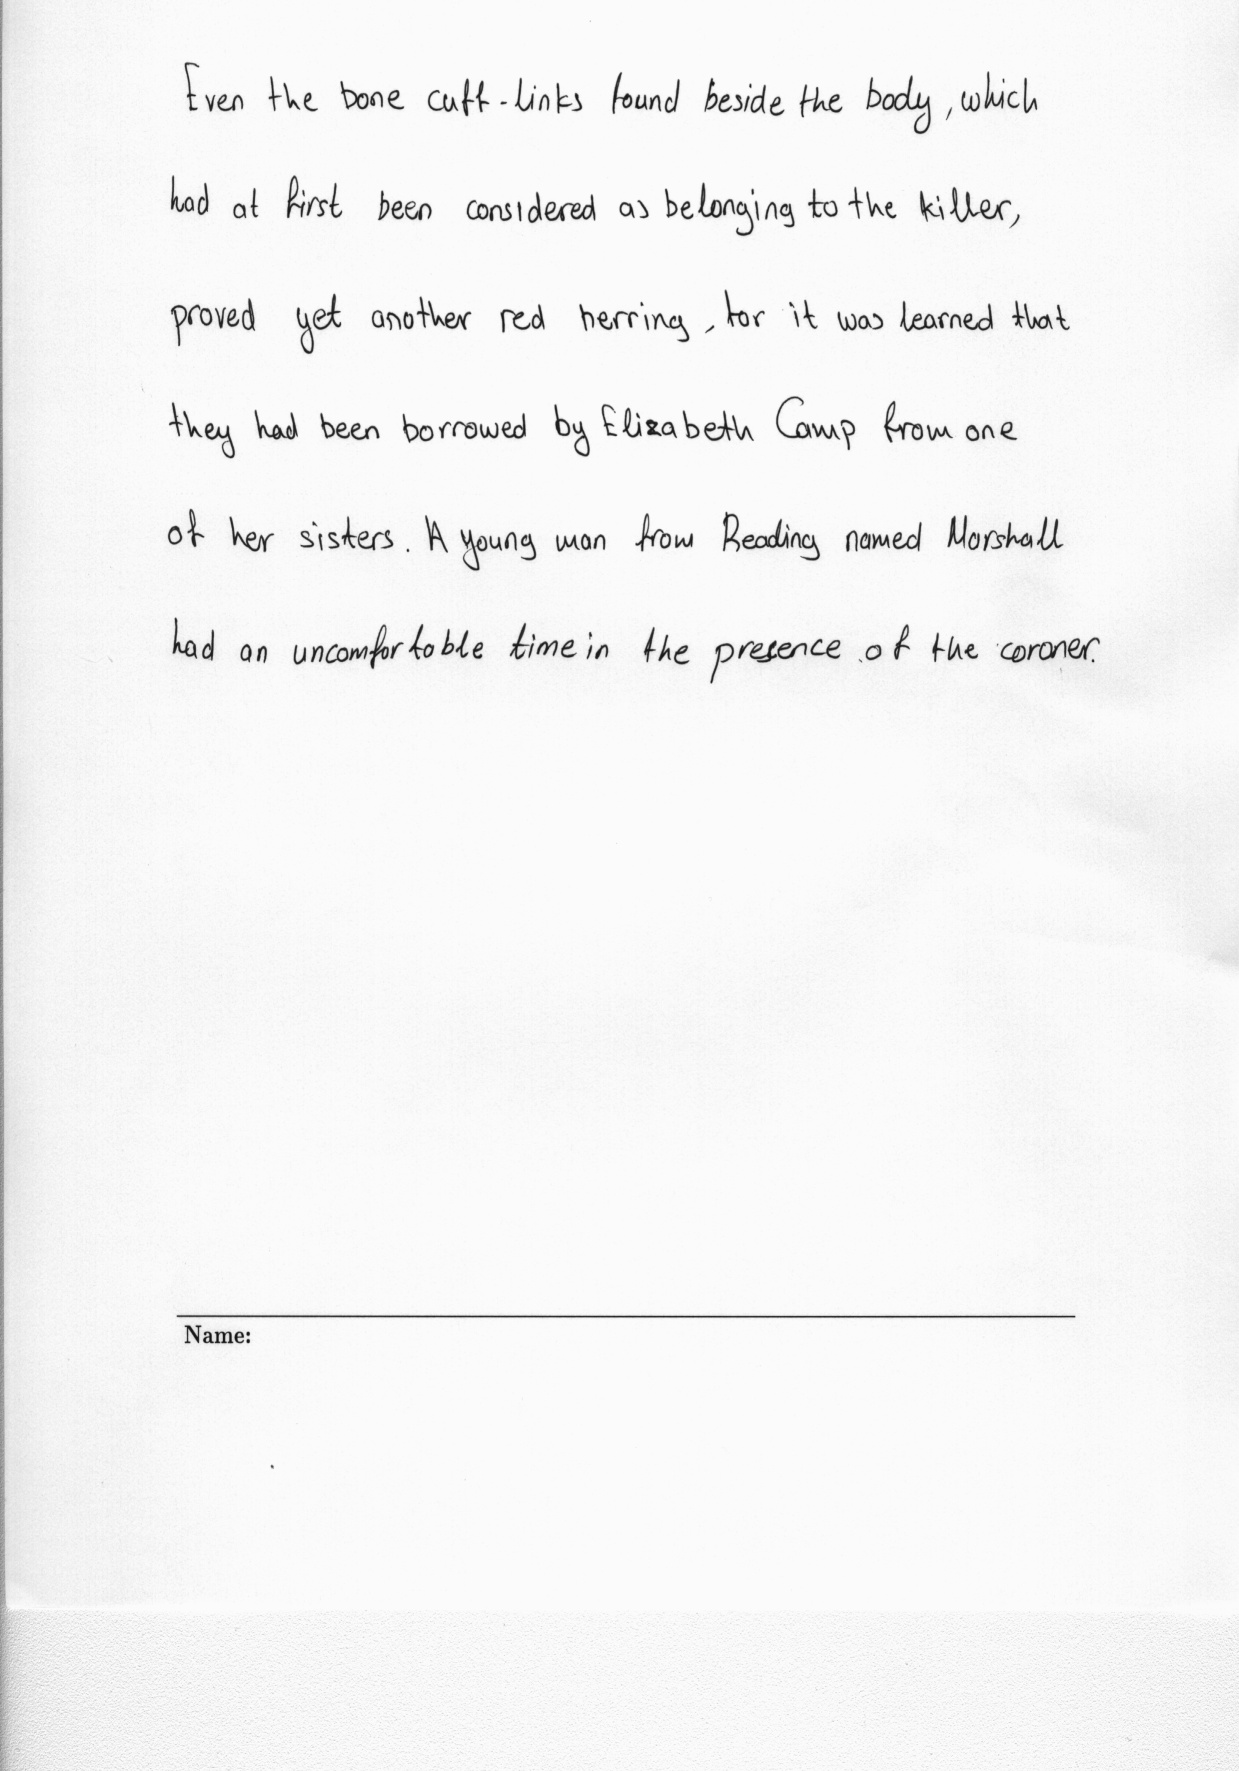 Even the bone cuff-links found beside the body, which
had at first been considered as belonging to the killer,
proved yet another red herring, for it was learned that
they had been borrowed by Elizabeth Camp from one
of her sisters. A young man from Reading named Marshall
had an uncomfortable time in the presence of the coroner.
Name: